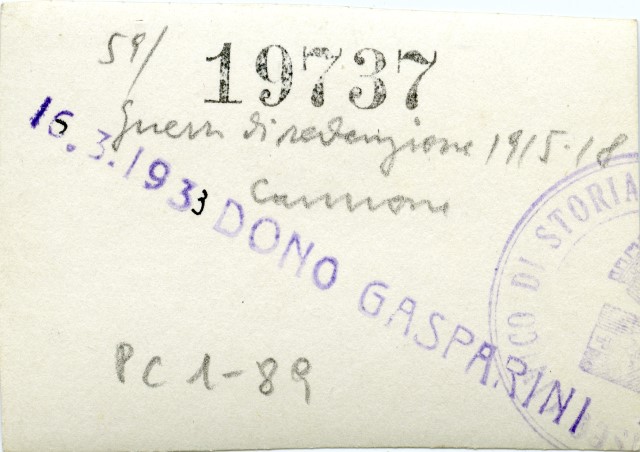 59/
19737
Guerra di redenzione 1915-18
Cannone
16.3.1933 DONO GASPARINI
PC 1-89
CO DI STORIA